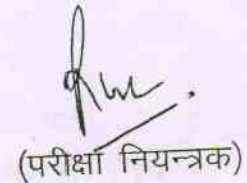 (परीक्षा नियन्त्रक)